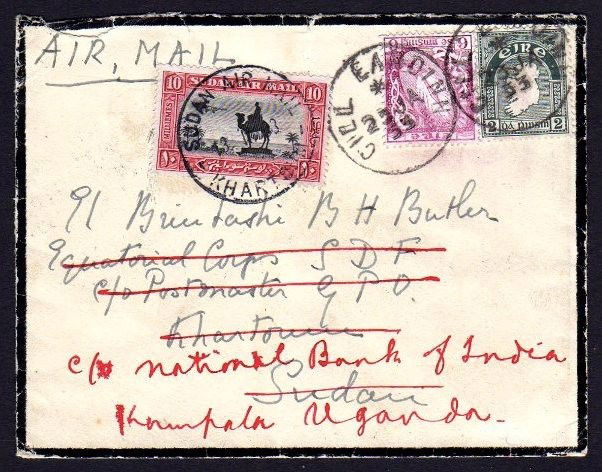 AIR, MAIL
10 SUDAN AIR MAIL 10
MILLIEMES
SUDAN AIR MAIL
KHARTOUM
CILL
ÉIRE
2 DA PINGIN 2
El Bimbashi B H Butler
Equatorial Corps S D F
c/o Postmaster G P O
Khartoum
c/o National Bank of India
Sudan
Kampala Uganda.